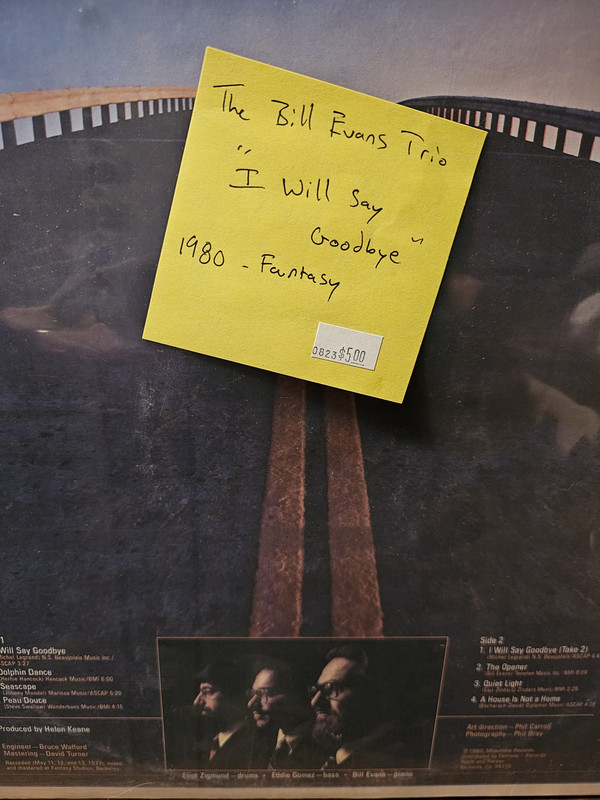 The Bill Evans Trio
"I Will Say
Goodbye"
1980 - Fantasy
0823 $5.00
1
Will Say Goodbye
Michel Legrand/ N.S. Beaujolais Music Inc./
ASCAP 3:27
Dolphin Dance
Herbie Hancock/ Hancock Music/BMI 6:50
Seascape
(Johnny Mandel/ Marissa Music/ASCAP 5:20
Peau Douce
(Steve Swallow/ Wonderbuns Music/BMI 4:15
Produced by Helen Keane
Engineer—Bruce Walford
Mastering—David Turner
Recorded (May 11, 12, and 13, 1977; mixed
and mastered at Fantasy Studios, Berkeley.
Side 2
1. I Will Say Goodbye (Take 2)
(Michel Legrand/ N.S. Beaujolais/ASCAP
2. The Opener
(Bill Evans/ Music Inc. BMI
3. Quiet Light
(Earl Zindars/ Zindars Music/BMI
4. A House Is Not a Home
(Bacharach-David/ Music/ASCAP
Art direction—Phil Carroll
Photography—Phil Bray
1980, Milestone Records
Distributed by Fantasy Records
Tenth and Parker
Berkeley, CA 94710
Eliot Zigmund—drums • Eddie Gomez—bass • Bill Evans—piano